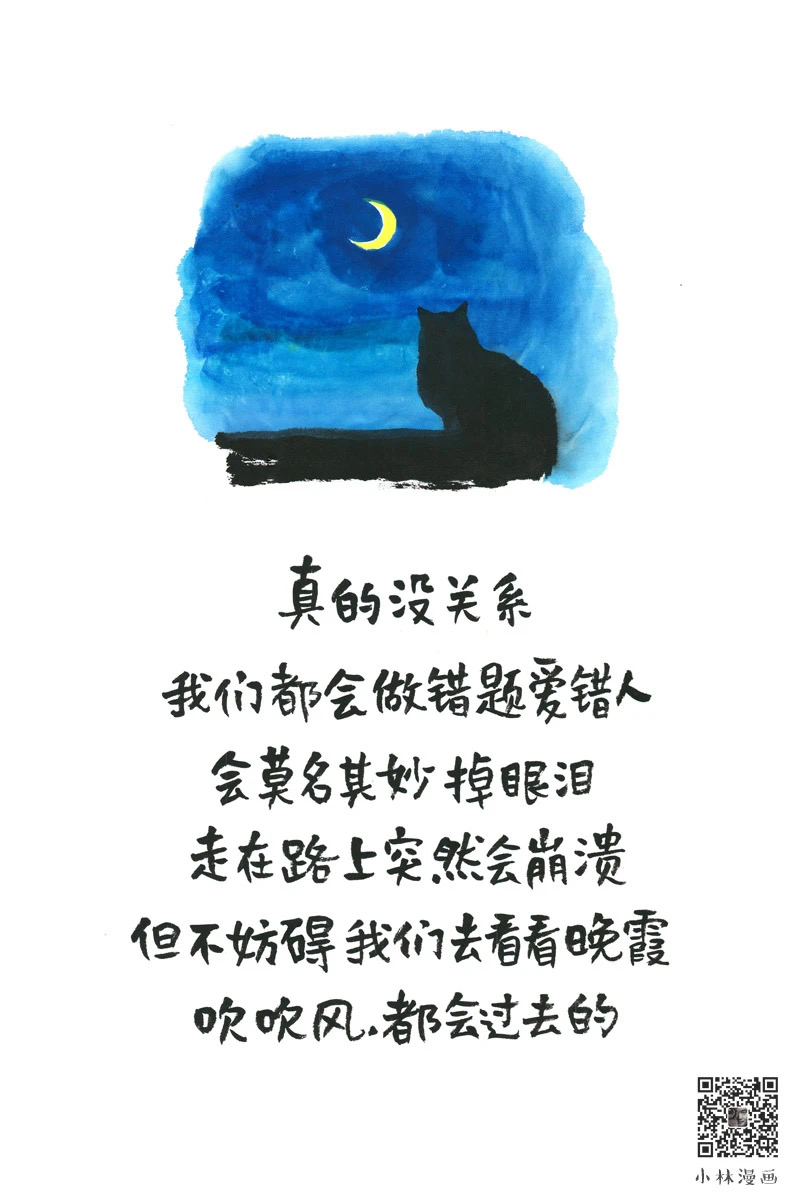 真的没关系
我们都会做错题爱错人
会莫名其妙掉眼泪
走在路上突然会崩溃
但不妨碍我们去看看晚霞
吹吹风.都会过去的
小林漫画